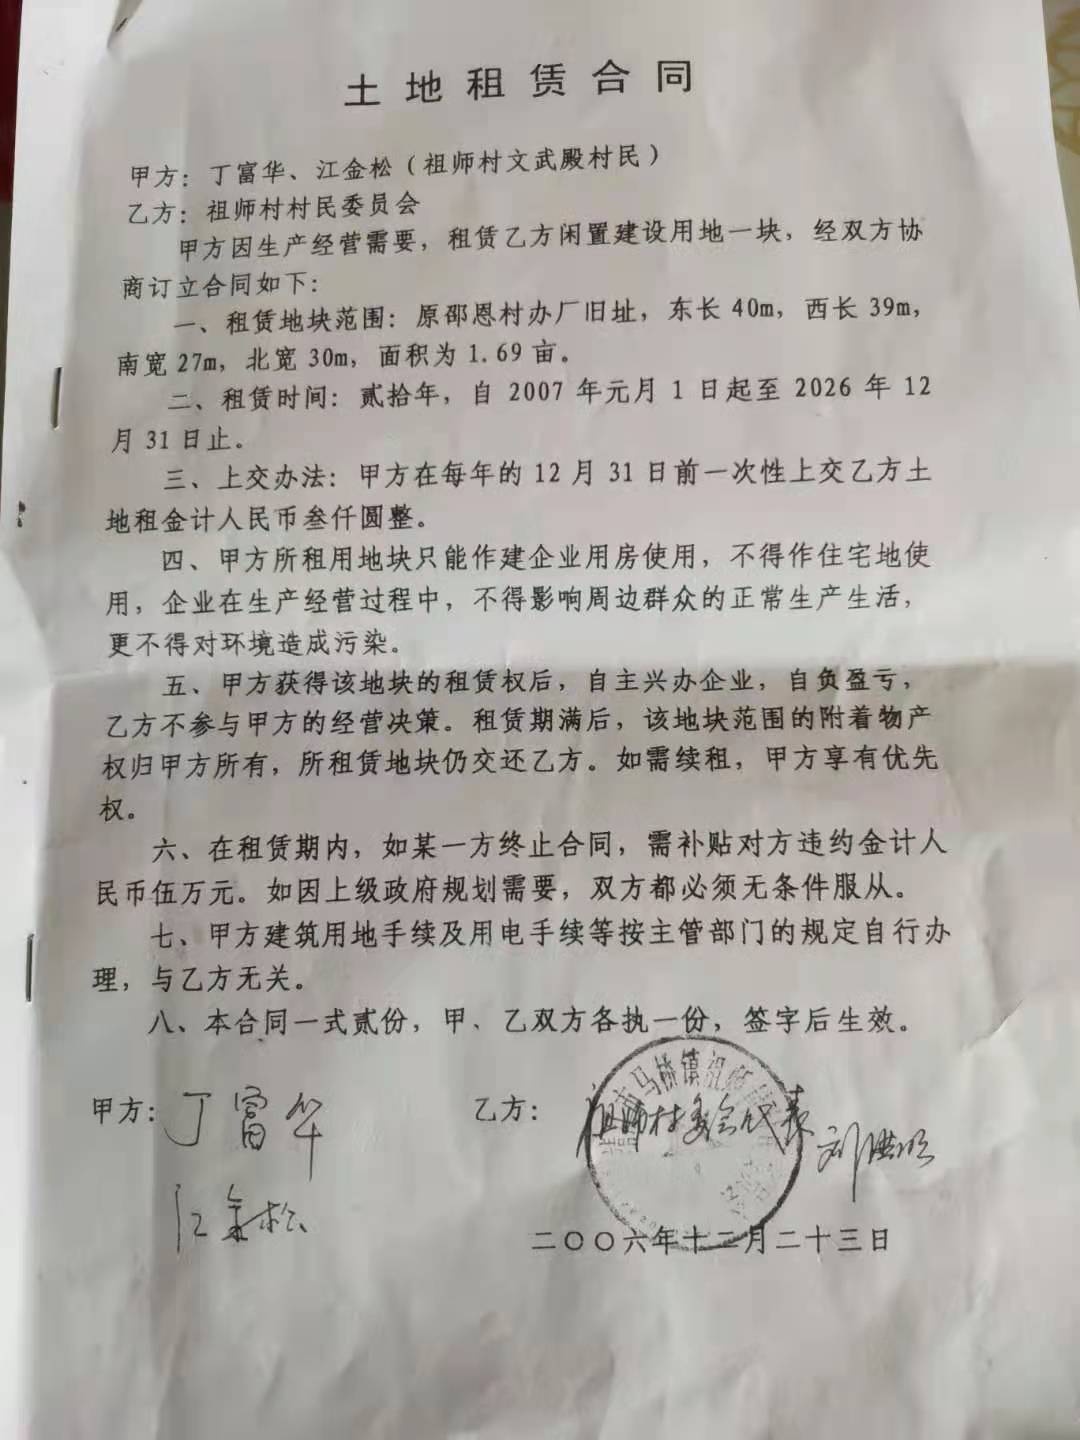 土地租赁合同
甲方：丁富华、江金松（祖师村文武殿村民）
乙方：祖师村村民委员会
甲方因生产经营需要，租赁乙方闲置建设用地一块，经双方协
商订立合同如下：
一、租赁地块范围：原邵恩村办厂旧址，东长 40m，西长 39m，
南宽 27m，北宽 30m，面积为 1.69 亩。
二、租赁时间：贰拾年，自 2007 年元月 1 日起至 2026 年 12
月 31 日止。
三、上交办法：甲方在每年的 12 月 31 日前一次性上交乙方土
地租金计人民币叁仟圆整。
四、甲方所租用地块只能作建企业用房使用，不得作住宅地使
用，企业在生产经营过程中，不得影响周边群众的正常生产生活，
更不得对环境造成污染。
五、甲方获得该地块的租赁权后，自主兴办企业，自负盈亏，
乙方不参与甲方的经营决策。租赁期满后，该地块范围的附着物产
权归甲方所有，所租赁地块仍交还乙方。如需续租，甲方享有优先
权。
六、在租赁期内，如某一方终止合同，需补贴对方违约金计人
民币伍万元。如因上级政府规划需要，双方都必须无条件服从。
七、甲方建筑用地手续及用电手续等按主管部门的规定自行办
理，与乙方无关。
八、本合同一式贰份，甲、乙双方各执一份，签字后生效。
甲方：丁富华
乙方：祖师村委会代表
江金松
市马桥镇祖师村
二〇〇六年十二月二十三日